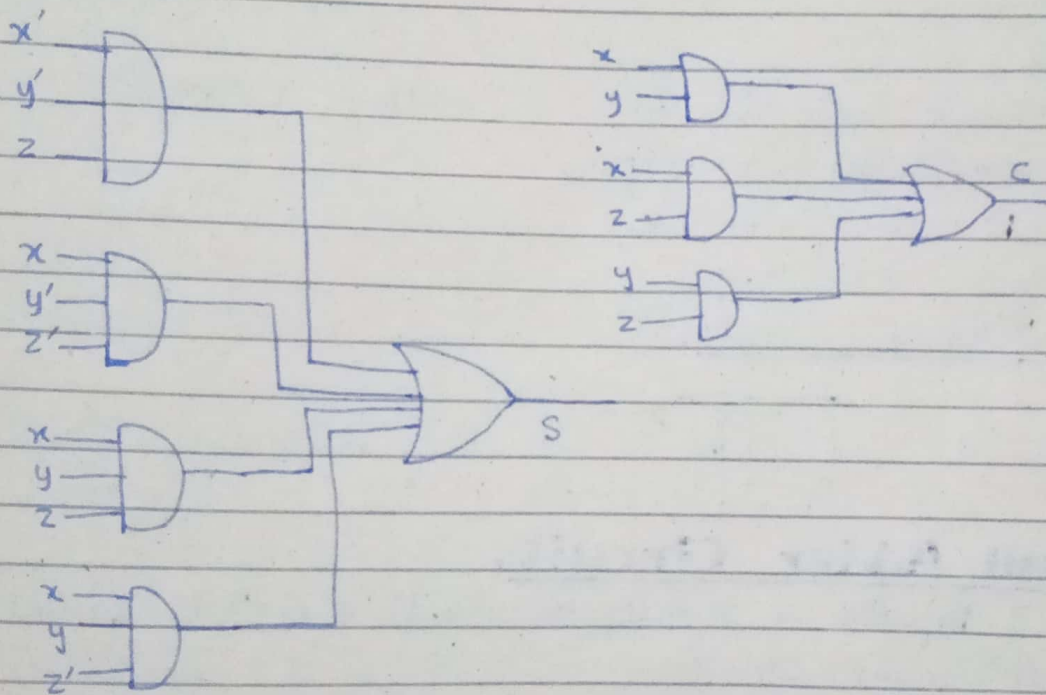 x'
y'
z
x
y'
z'
x
y
z
x
y
z'
S
x
y
x
z
y
z
C